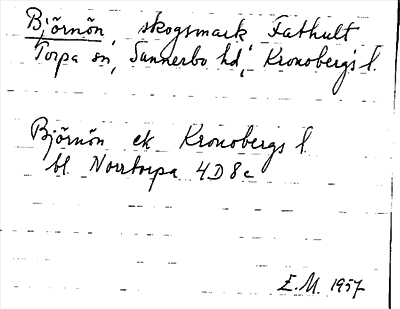 Björnön, skogsmark, Fathult
Torpa sn, Sunnerbo hd, Kronobergs l.
Björnön ek Kronobergs l
bl Norrtorpa 4D8c
E.M. 1957